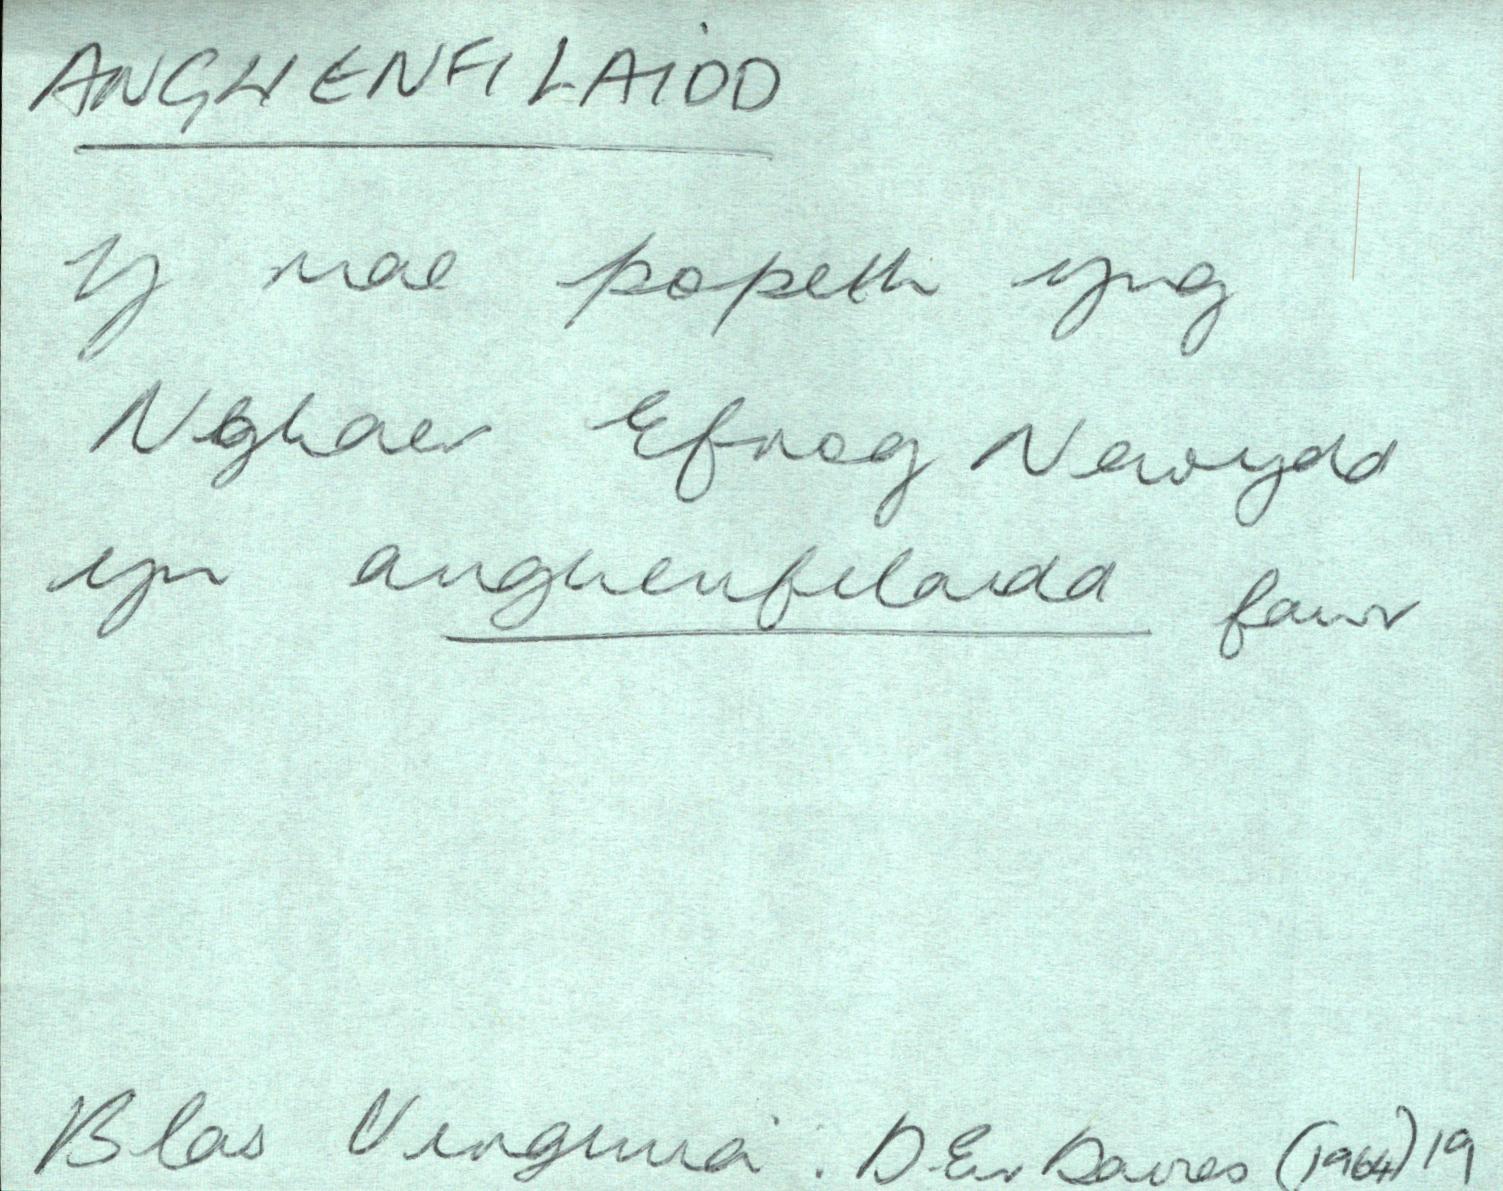 ANGHENFILAIDD
Y mae popeth yng
Nghaer Efrog Newydd
yn anghenfilaidd fawr
Blas Virginia : D Eir Davies (1964) 19